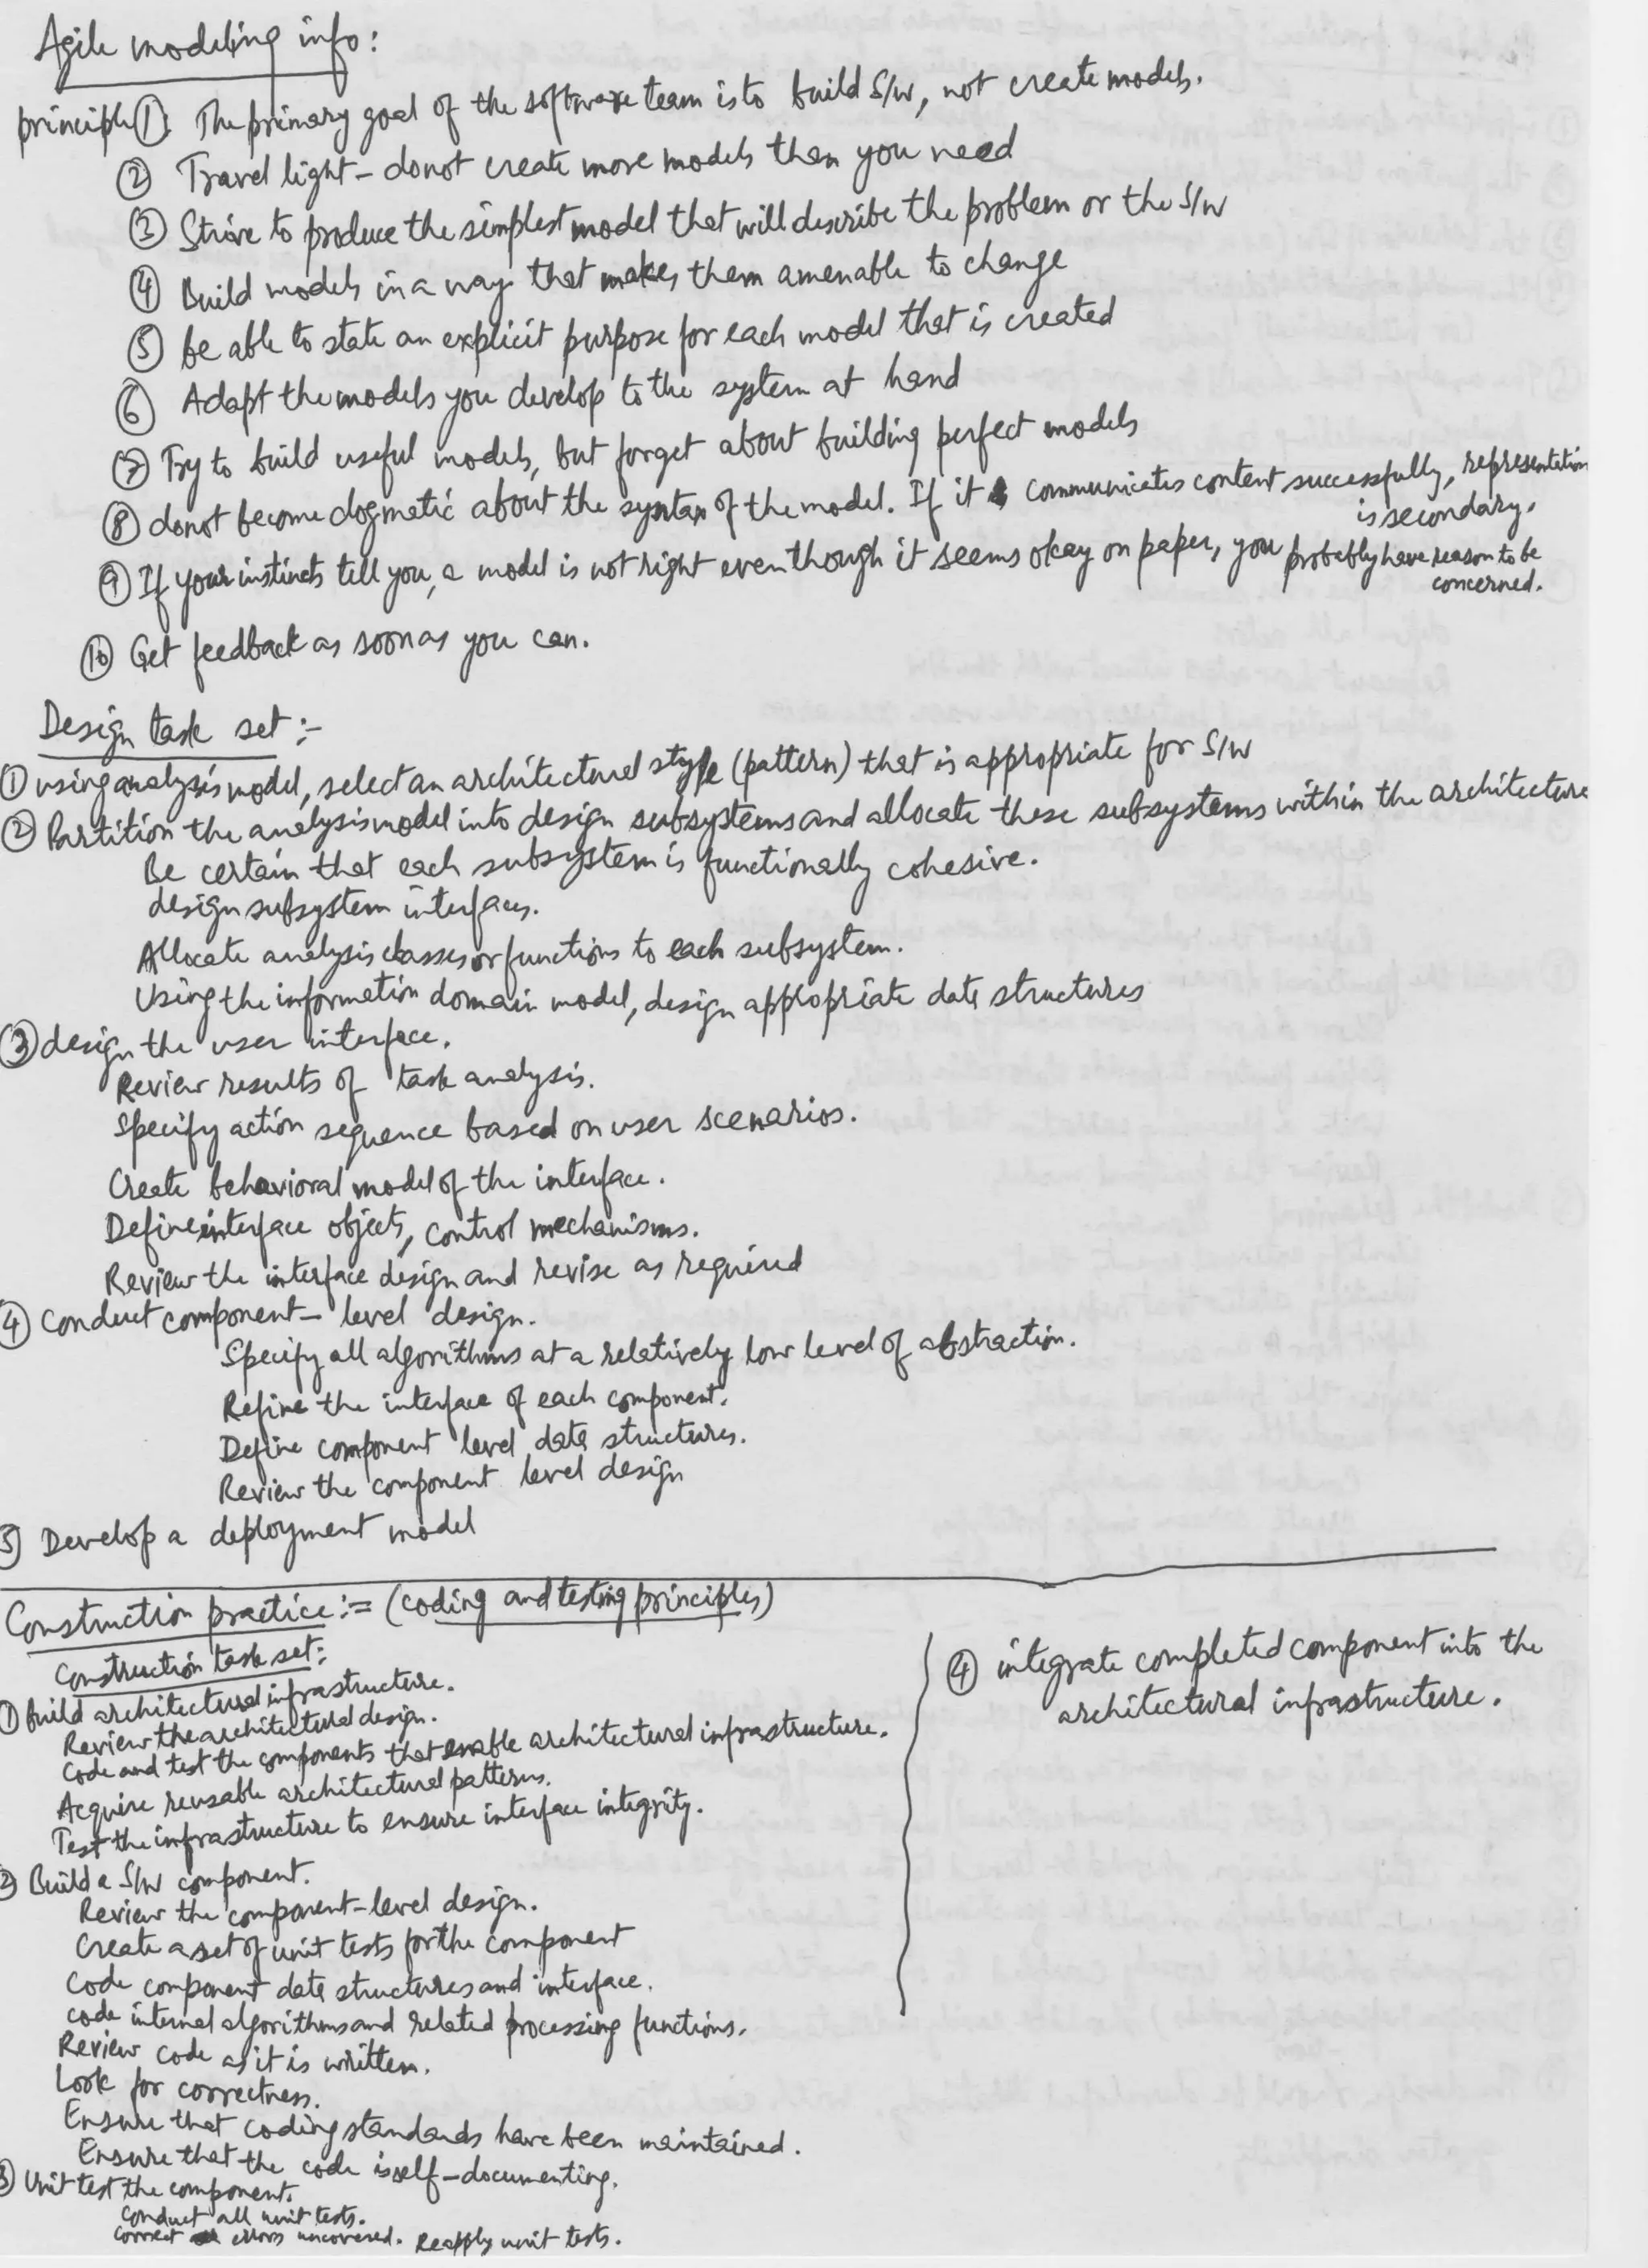 Agile modeling info:
principle ① The primary goal of the software team is to build S/W, not create models.
② Travel light - donot create more models than you need
③ Strive to produce the simplest model that will describe the problem or the S/W
④ Build models in a way that makes them amenable to change
⑤ be able to state an explicit purpose for each model that is created
⑥ Adapt the models you develop to the system at hand
⑦ Try to build useful models, but forget about building perfect models
⑧ donot become dogmatic about the syntax of the model. If it communicates content successfully, representation
is secondary.
⑨ If your instincts tell you, a model is not right even though it seems okay on paper, you probably have reason to be
concerned.
⑩ Get feedback as soon as you can.
Design task set :-
① using analysis model, select an architectural style (pattern) that is appropriate for S/W
② Partition the analysis model into design subsystems and allocate these subsystems within the architecture
Be certain that each subsystem is functionally cohesive.
design subsystem interfaces.
Allocate analysis classes or functions to each subsystem.
Using the information domain model, design appropriate data structures
③ design the user interface.
Review results of task analysis.
Specify action sequence based on user scenarios.
Create behavioral model of the interface.
Define interface objects, control mechanisms.
Review the interface design and revise as required
④ Conduct component-level design.
Specify all algorithms at a relatively low level of abstraction.
Refine the interface of each component.
Define component level data structures.
Review the component level design
⑤ Develop a deployment model
Construction practice:= (coding and testing principles)
Construction task set:
① Build architectural infrastructure.
Review the architectural design.
Code and test the components that enable architectural infrastructure.
Acquire reusable architectural patterns.
Test the infrastructure to ensure interface integrity.
② Build a S/W component.
Review the component-level design.
Create a set of unit tests for the component
Code component data structures and interface.
code internal algorithms and related processing functions.
Review code as it is written.
Look for correctness.
Ensure that coding standards have been maintained.
Ensure that the code is self-documenting.
③ Unit test the component.
Conduct all unit tests.
Correct errors uncovered. Reapply unit tests.
④ integrate completed component into the
architectural infrastructure.